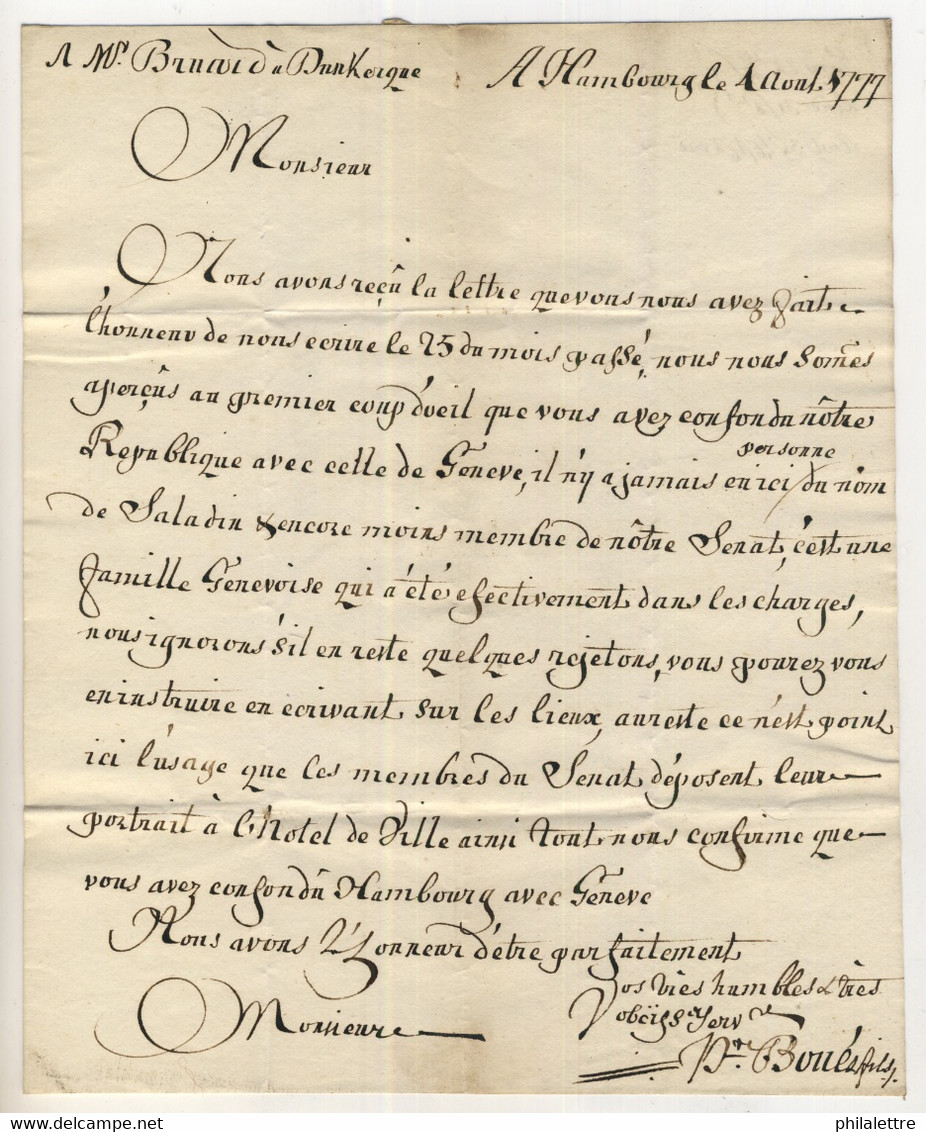 A Mr. Bruard à Dunkerque A Hambourg le 4 Aout 1777
Monsieur
Nous avons reçû la lettre que vous nous avez fait
l'honneur de nous ecrire le 25 du mois passé, nous nous somes
aperçûs au premier coup d'oeil que vous avez confondu nôtre
personne
Republique avec celle de Géneve, il n'y a jamais eu ici du nom
de Saladin & encore moins membre de nôtre Senat, c'est une
famille Génevoise qui a été efectivement dans les charges,
nous ignorons s'il en reste quelques rejetons, vous pourez vous
en instruire en écrivant sur les lieux, au reste ce n'est point
ici l'usage que les membres du Sénat déposent leur
portrait à l'Hotel de Ville ainsi tout nous confirme que
vous avez confondû Hambourg avec Géneve
Nous avons l'honneur d'être parfaitement
Vos très humbles & très
Monsieur obéiss. Serv
Pre. Boué & fils.
philalettre